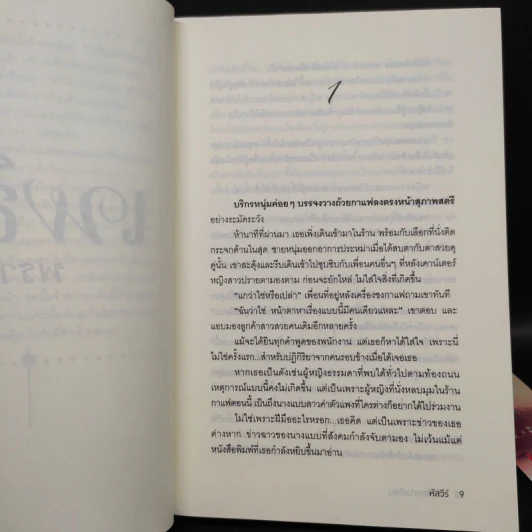 1
บริกรหนุ่มค่อยๆ บรรจงวางถ้วยกาแฟลงตรงหน้าสุภาพสตรี
อย่างระมัดระวัง
ห้านาทีที่ผ่านมา เธอเพิ่งเดินเข้ามาในร้าน พร้อมกับเลือกที่นั่งติด
กระจกด้านในสุด ชายหนุ่มออกอาการประหม่าเมื่อได้สบตากับตาสวยดุ
คู่นั้น เขาสะดุ้งและรีบเดินเข้าไปซุบซิบกับเพื่อนคนอื่นๆ ที่หลังเคาน์เตอร์
หญิงสาวปรายตามองตาม ก่อนจะยักไหล่ ไม่ใส่ใจสิ่งที่เกิดขึ้น
“แกว่าใช่หรือเปล่า” เพื่อนที่อยู่หลังเครื่องชงกาแฟถามเขาทันที
“ฉันว่าใช่ หน้าตาหาเรื่องแบบนี้มีคนเดียวแหละ” เขาตอบ และ
แอบมองลูกค้าสาวสวยคนเดิมอีกหลายครั้ง
แม้จะได้ยินทุกคำพูดของพนักงาน แต่เธอก็หาได้ใส่ใจ เพราะนี่
ไม่ใช่ครั้งแรก...สำหรับปฏิกิริยาจากคนรอบข้างเมื่อได้เจอเธอ
หากเธอเป็นดังเช่นผู้หญิงธรรมดาที่พบได้ทั่วไปตามท้องถนน
เหตุการณ์แบบนี้คงไม่เกิดขึ้น แต่เป็นเพราะผู้หญิงที่นั่งหลบมุมในร้าน
กาแฟตอนนี้ เป็นถึงนางแบบสาวค่าตัวแพงที่ใครต่างก็อยากได้ไปร่วมงาน
ไม่ใช่เพราะฝีมืออะไรหรอก...เธอคิด แต่เป็นเพราะข่าวของเธอ
ต่างหาก ข่าวฉาวของนางแบบที่สังคมกำลังจับตามอง ไม่เว้นแม้แต่
หนังสือพิมพ์ที่เธอกำลังหยิบขึ้นมาอ่าน
หัสวีร์ 9